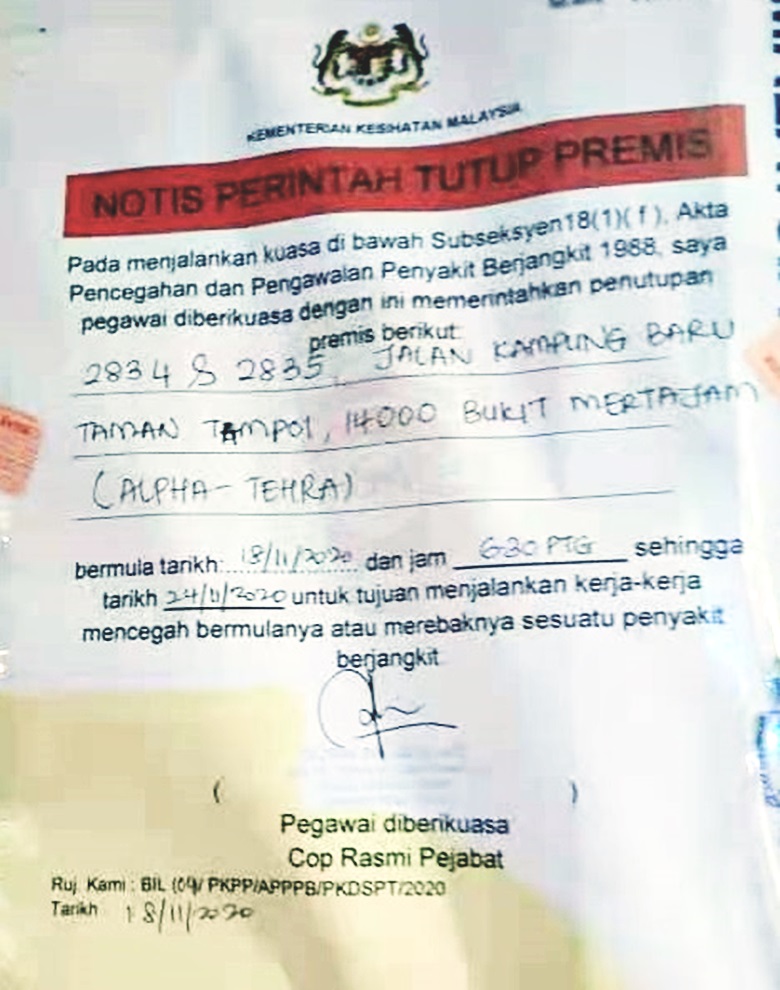 KEMENTERIAN KESIHATAN MALAYSIA
NOTIS PERINTAH TUTUP PREMIS
Pada menjalankan kuasa di bawah Subseksyen18(1)( f ), Akta
Pencegahan dan Pengawalan Penyakit Berjangkit 1988, saya
pegawai diberikuasa dengan ini memerintahkan penutupan
premis berikut:
2834 & 2835, JALAN KAMPUNG BARU
TAMAN TAMPOI, 14000 BUKIT MERTAJAM
(ALPHA-TEHRA)
bermula tarikh: 18/11/2020 dan jam 6:30 PTG sehingga
tarikh 24/11/2020 untuk tujuan menjalankan kerja-kerja
mencegah bermulanya atau merebaknya sesuatu penyakit
berjangkit
( )
Pegawai diberikuasa
Cop Rasmi Pejabat
Ruj. Kami : BIL (09)/ PKPP/APPPB/PKDSPT/2020
Tarikh 18/11/2020